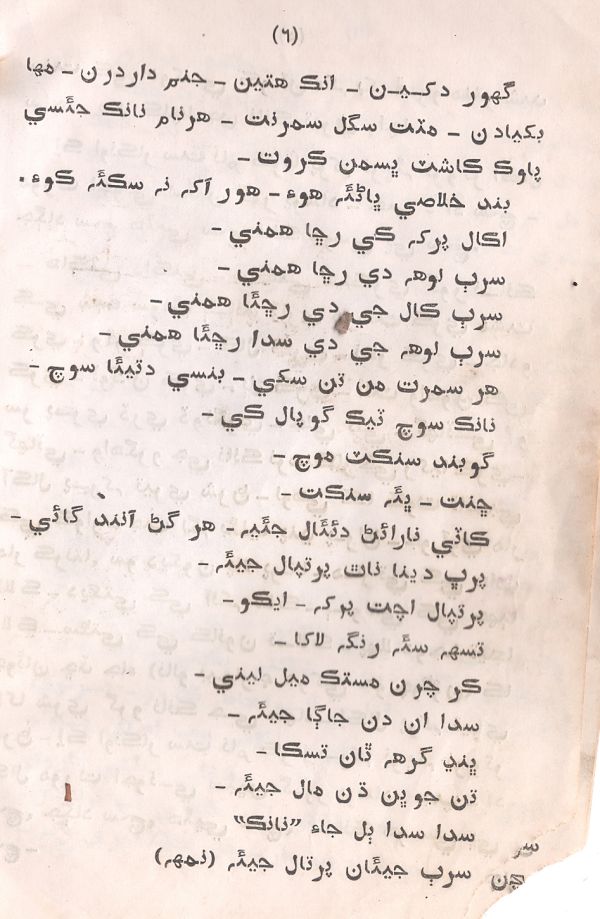 (٦)
گهور دکيـن ـ انڪ هتين ـ جنم داردرن ـ مها
بکيادن ـ مٽت سگل سمرنت ـ هرنام نانڪ جئسي
پاوڪ ڪاشٽ ڀسمن ڪروت ـ
بند خلاصي ڀاڻئه هوء ـ هور آکہ نہ سڪئہ ڪوء.
اڪال پرکہ ڪي رڇا همني ـ
سرب لوهہ دي رڇا همني ـ
سرب ڪال جي دي رڇئا همني ـ
سرب لوهہ جي دي سدا رڇئا همني ـ
هر سمرت من تن سکي ـ بنسي دتيئا سوچ ـ
نانڪ سوچ ٽيڪ گوپال ڪي ـ
گوبند سنڪٽ موچ ـ
چنت ـ ڀئہ سنڪت ـ
ڪاٽي نارائڻ دئئال جئيہ ـ هر گڻ آنند گائي ـ
پرڀ دينا ناٿ پرتپال جيئہ ـ
پرتپال اچت پرکہ ـ ايڪو ـ
تسهہ سئہ رنگہ لاڪا ـ
ڪر چرن مستڪ ميل ليني ـ
سدا ان دن جاڳا جيئہ ـ
ڀنڊ گرهہ ٿان تسڪا ـ
تن جوڀن ڌن مال جيئہ ـ
سدا سدا بل جاء ”نانڪ“
سرب جيئان پرتال جيئہ (نمهہ)
سر
چن